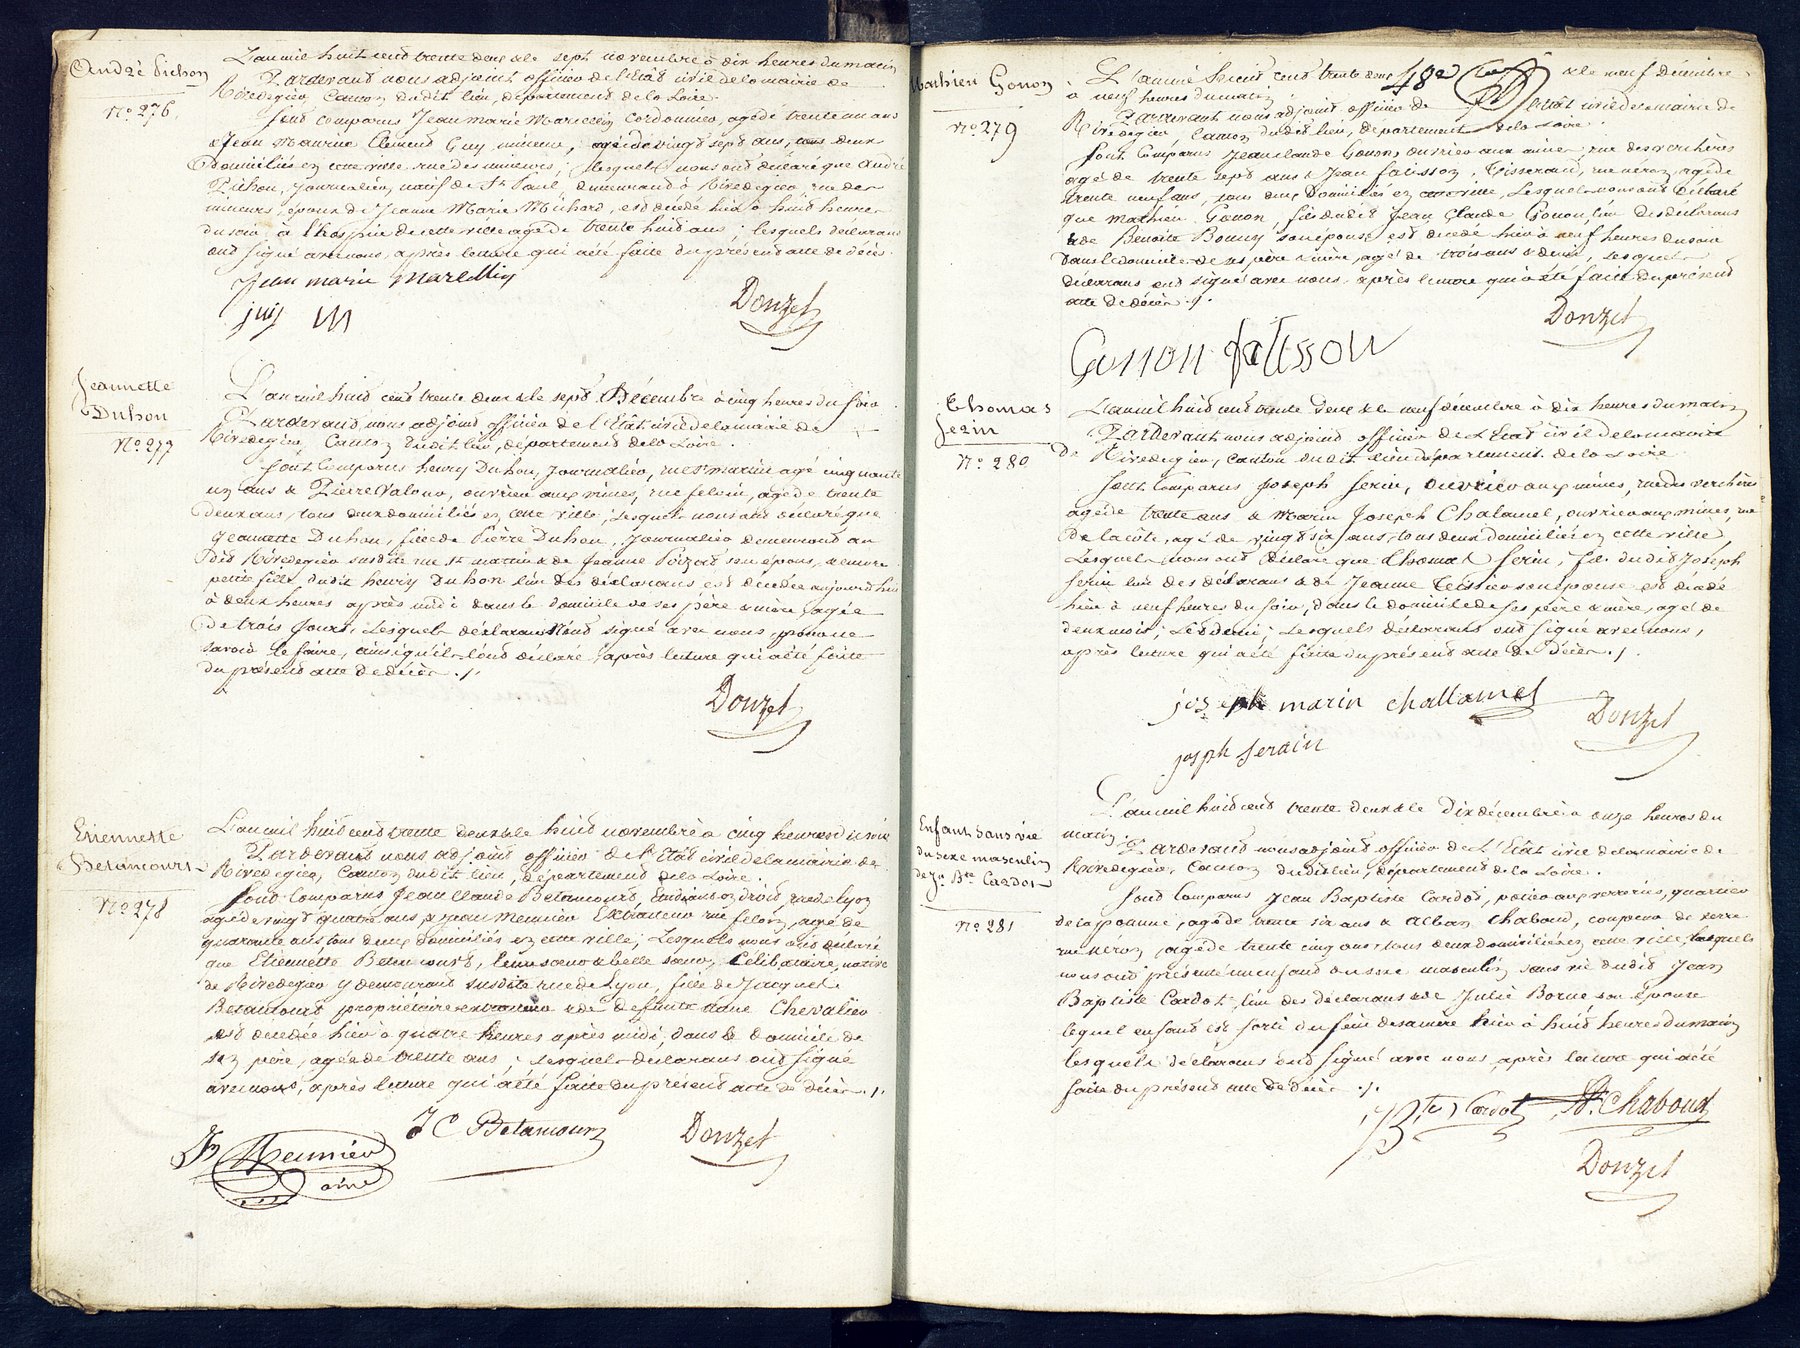 André Pichon
N° 276
L'an mil huit cent trente deux & le sept novembre à dix heures du matin
Pardevant nous adjoint officier de l'Etat civil de la mairie de
Rivedegier, Canton dudit lieu, département de la Loire.
Sont comparus Jean Marie Marcellin Cordonnier, agé de trente un ans
& Jean Maurice Clément Guy mineur, agé de vingt sept ans, tous deux
domiciliés en cette ville, rue des mineurs; lesquels nous ont déclaré que André
Pichon, Journalier, natif de St Paul, demeurand à Rivedegier, rue des
mineurs, époux de Jeanne Marie Michard, est décédé hier à huit heures
du soir, à l'hospice de cette ville agé de trente huit ans; lesquels declarans
ont signé avec nous, après lecture qui a été faite du présent acte de décès.
Jean marie marcellin
Donzel
Jeannette
Duhon
N° 277
L'an mil huit cent trente deux & le sept Décembre à cinq heures du soir
Pardevant nous adjoint officier de l'Etât civil de la mairie de
Rivedegier, Canton dudit lieu, département de la Loire.
Sont comparus henry Duhon, Journalier, rue St martin agé cinquante
un ans & Pierre Valour, ouvrier aux mines, rue feloin, agé de trente
deux ans, tous deux domiciliés en cette ville, Lesquels nous ont déclaré que
Jeannette Duhon, fille de Pierre Duhon, Journalier demeurand au
dit Rivedegier susdite rue St martin & de Jeanne Poizat son épouse, & encore
petite fille dudit henry Duhon l'un des déclarans est décédée aujourd'hui
à deux heures après midi dans le domicile de ses père & mère, agée
De trois Jours, Lesquels déclarans N'ont signé avec nous, pour ne
savoir le faire, ainsi qu'ils l'ont déclaré, après lecture qui a été faite
du présent acte de décès ./.
Donzel
Etiennette
Betancourt
N° 278
L'an mil huit cent trente deux & le huit novembre à cinq heures du soir
Pardevant nous adjoint officier de l'Etat civil de la mairie de
Rivedegier, Canton dudit lieu, département de la Loire.
Sont comparus Jean Claude Betancourt, Etudiant en droit, rue de Lyon
agé de vingt quatre ans, & Jean Meunier Extracteur rue felon, agé de
quarante ans, tous deux domiciliés en cette ville; Lesquels nous ont déclaré
que Etiennette Betancourt, leur sœur & belle sœur, Célibataire, native
de Rivedegier y demeurant susdite rue de Lyon, fille de Jacques
Betancourt propriétaire extracteur & de defunte Chevalier
est décédée hier à quatre heures après midi, dans le domicile de
son père, agée de trente ans; Lesquels declarans ont signé
avec nous, après lecture qui a été faite du présent acte de décès ./.
Jn Meunier
ainé
J C Betancourt
Donzel
Mathieu Gonon
N° 279
48e
L'an mil huit cent trente deux & le neuf décembre
à neuf heures du matin
Pardevant nous adjoint officier de l'Etât civil de la mairie de
Rivedegier, Canton dudit lieu, département de la Loire.
Sont Comparus Jean Claude Gonon, ouvrier aux mines, rue des verchères
agé de trente sept ans & Jean falisson, Tisserand, rue néron, agé de
trente neuf ans, tous deux Domiciliés en cette ville, Lesquels nous ont Déclaré
que mathieu Gonon, fils dudit Jean Claude Gonon l'un des déclarans
& de Benoite Bonny son épouse est décédé hier à neuf heures du soir
Dans le domicile de ses père & mère, agé de trois ans & demi, Lesquels
déclarans, ont signé avec nous, après lecture qui a été faite du présent
acte de décès ./.
Donzel
Gonon falisson
Thomas
Serin
N° 280
L'an mil huit cent trente deux & le neuf décembre à dix heures du matin
Pardevant nous adjoint officier de l'Etat civil de la mairie
De Rivedegier, canton dudit lieu département de la Loire
Sont comparus Joseph Serin, ouvrier aux mines, rue des verchères
agé de trente ans & Marin Joseph Chalamel, ouvrier aux mines, rue
De la côte, agé de vingt six ans, tous deux domiciliés en cette ville,
Lesquels nous ont déclaré que Thomas Serin, fils dudit Joseph
Serin l'un des déclarans & de Jeanne Teissier son épouse est décédé
hier à neuf heures du soir, dans le domicile de ses père & mère, agé de
deux mois; & demi; Lesquels déclarans ont signé avec nous,
après lecture qui a été faite du présent acte de décès ./.
joseph marin challamel
Donzel
joseph Serain
Enfant sans vie
du sexe masculin
de Jn Bte Cardot
N° 281
L'an mil huit cent trente deux & le Dix décembre à onze heures du
matin.
Pardevant nous adjoint officier de l'Etât civil de la mairie de
Rivedegier, Canton dudit lieu, département de la Loire.
Sont comparus Jean Baptiste Cardot, potier aux verreries, quartier
de la pomme, agé de trente six ans & Alban Chaboud, coupeur de verre
rue neron, agé de trente cinq ans, tous deux domiciliés en cette ville, lesquels
nous ont présenté un enfant du sexe masculin sans vie dudit Jean
Baptiste Cardot, l'un des déclarans & de Julie Borne son épouse
lequel enfant est sorti du sein de sa mère hier à huit heures du matin
lesquels déclarans ont signé avec nous, après lecture qui a été
faite du présent acte de décès ./.
J Bte Cardot
A. Chaboud
Donzel